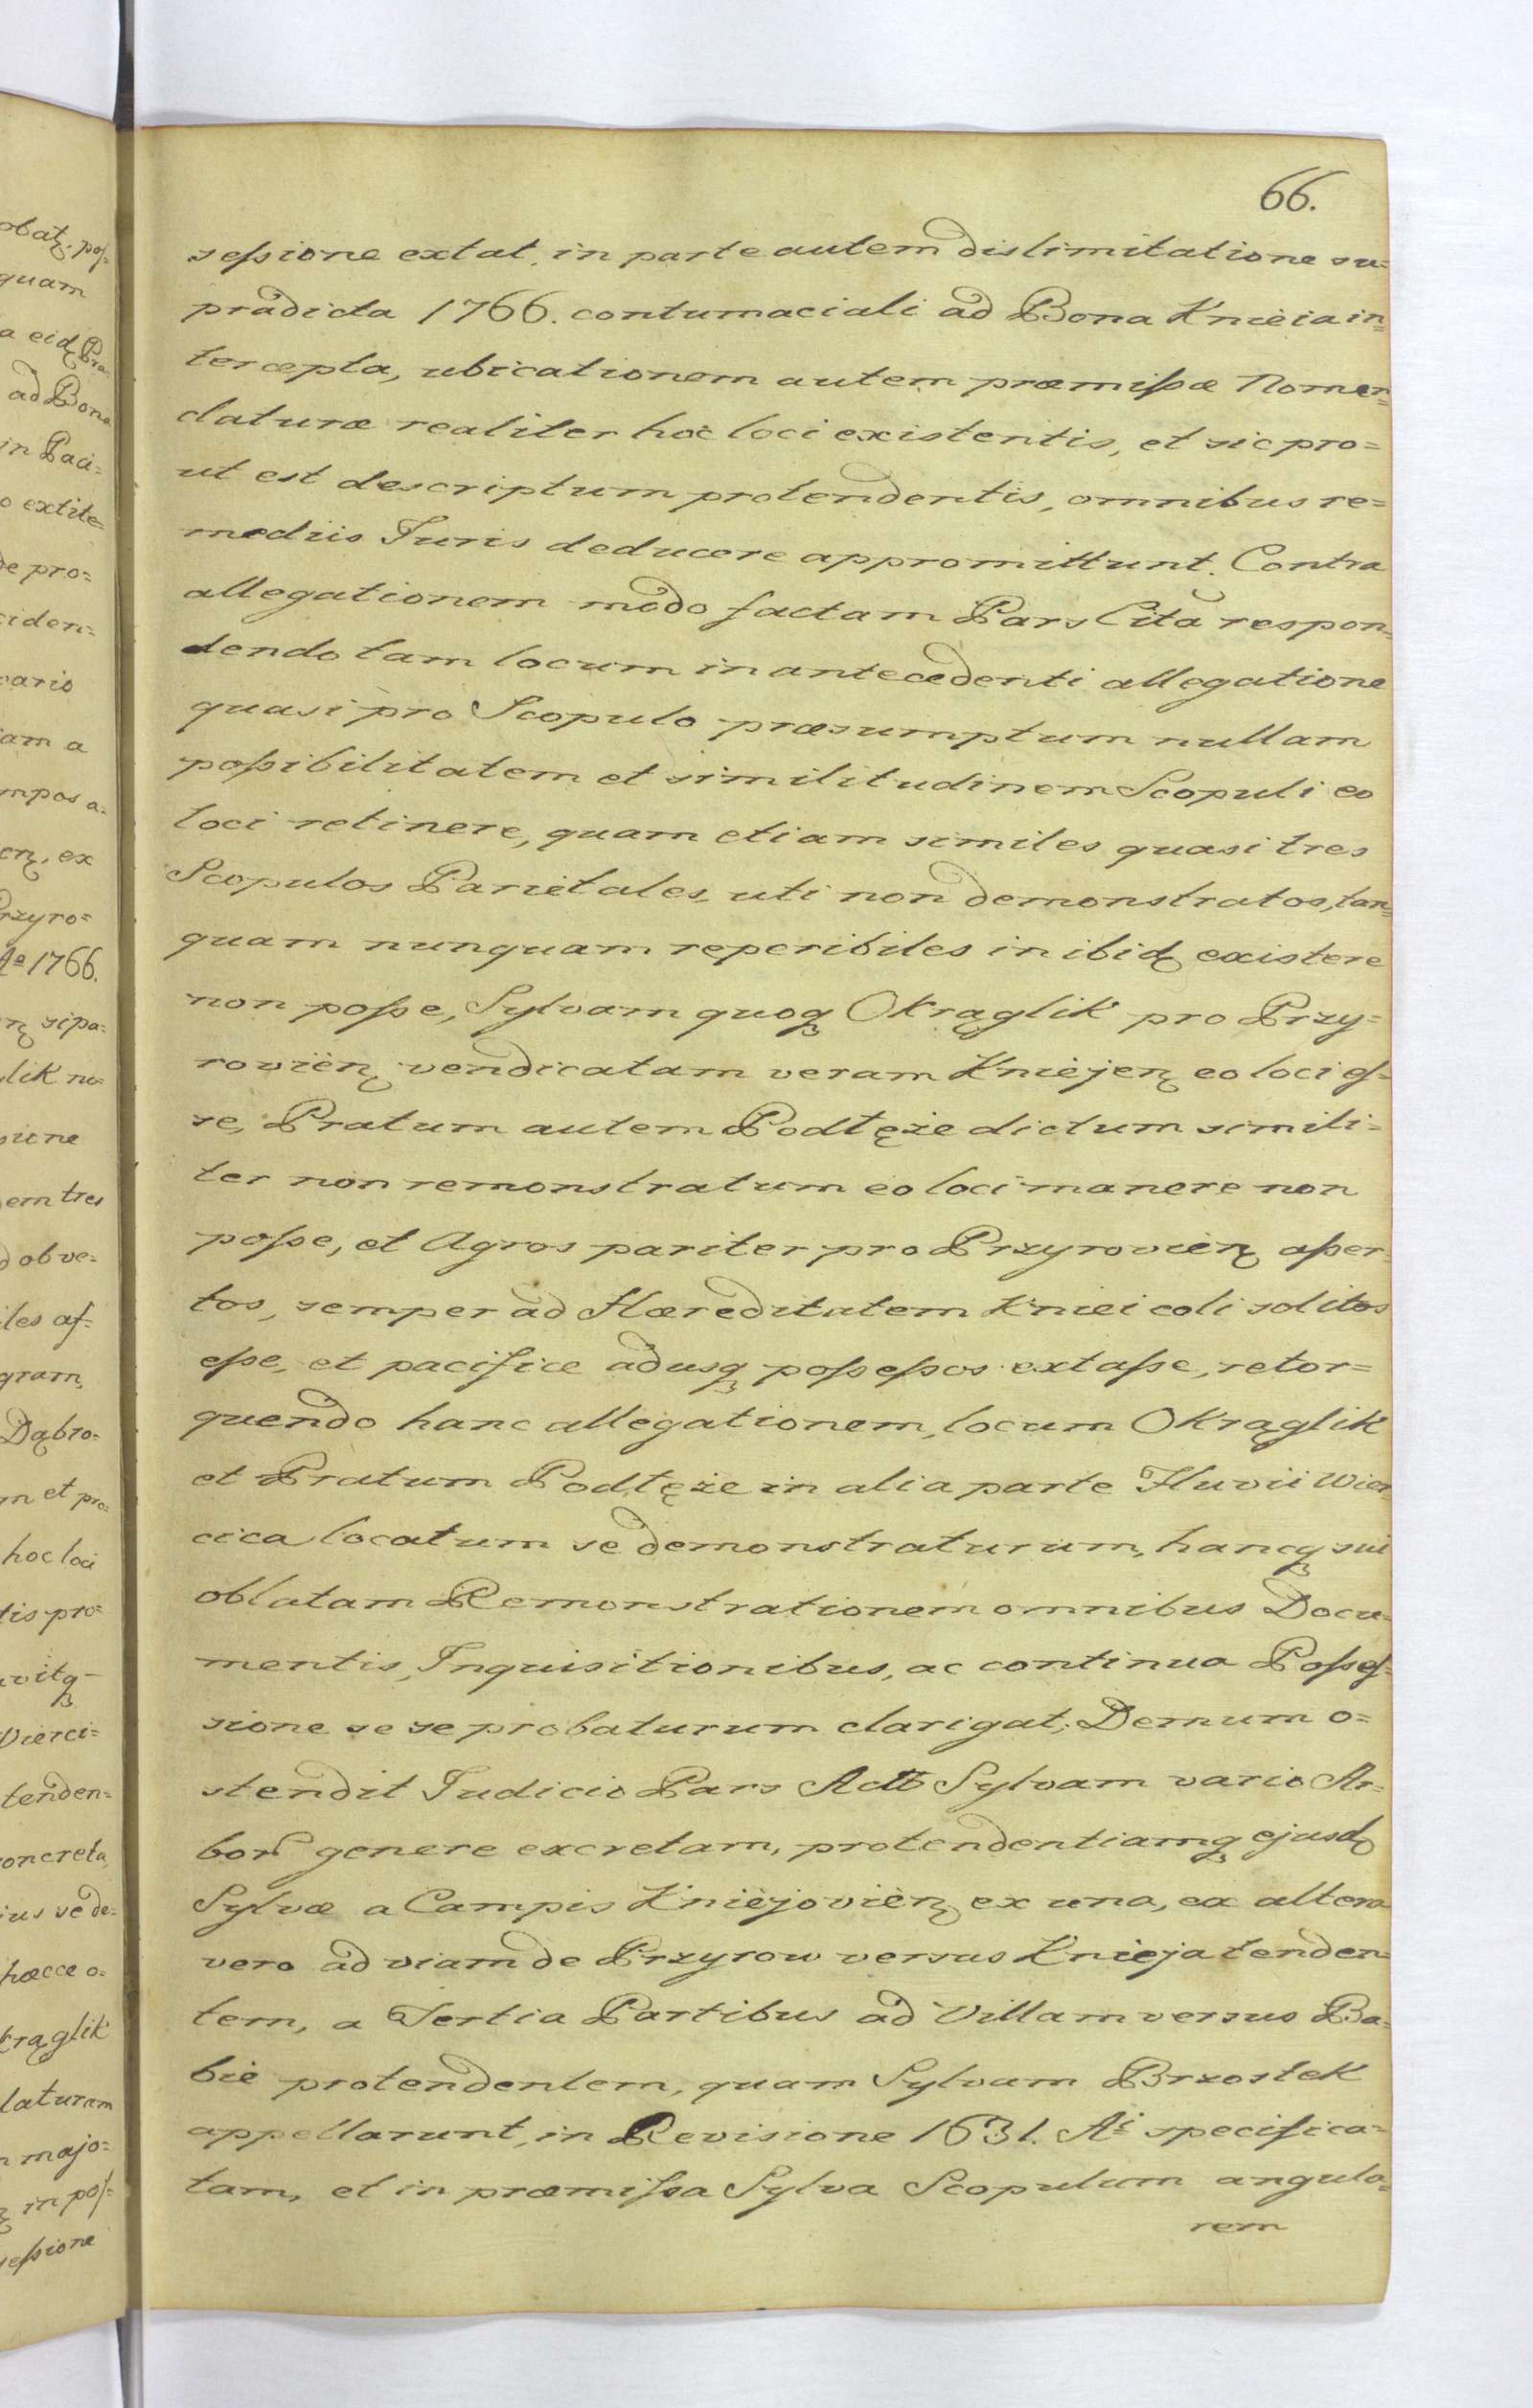 66.
sessione extat, in parte autem dislimitatione su=
prådicta 1766. contumaciali ad Bona Knieia in=
tercepta, ubicationem autem præmissæ Nomen=
claturæ realiter hoc loci existentis, et sic pro=
ut est descriptum protendentis, omnibus re=
mediis Juris deducere appromittunt. Contra
allegationem modo factam Pars Cita respon=
dendo tam locum in antecedenti allegatione
quasi pro Scopulo præsumptum nullam
possibilitatem et similitudinem Scopuli eo
loci retinere, quam etiam similes quasi tres
Scopulos Parietales, uti non demonstratos, tan=
quam nunquam reperibiles in ibidʒ existere
non posse, Sylvam quoqʒ Okrąglik pro Przy=
roviënʒ vendicatam veram Kniejenʒ eo loci es=
se, Pratum autem Podłęże dictum simili=
ter non remonstratum eo loci manere non
posse, et Agros pariter pro Przyrovienʒ asser=
tos, semper ad Hæreditatem Kniei coli solitos
esse, et pacifice adusqʒ possessos extasse, retor=
quendo hanc allegationem, locum Okrąglik
et Pratum Podłęże in alia parte Fluvii Wier=
cica locatum se demonstraturum, hancqʒ sui
oblatam Remonstrationem omnibus Docu=
mentis, Inquisitionibus, ac continua Posses=
sione se se probaturum clarigat; Demum o=
stendit Judicio Pars Actᷓ Sylvam vario Ar=
borᷓ genere excretam, protendentiamqʒ ejusdʒ
Sylvæ a Campis Kniejovienʒ ex una, ex altera
vero ad viam de Przyrow versus Knieja tenden=
tem, a Tertia Partibus ad Villam versus Ba=
bie protendentem, quam Sylvam Brzostek
appellarunt, in Revisione 1631. Aⁱ specifica=
tam, et in præmissa Sylva Scopulum angula=
rem
obatʒ. pos=
quam
a eidʒ Præ=
ad Bona
in Paci=
o extite=
de pro=
ciden=
cario
iam a
mpos a=
enʒ, ex
Przyro=
Aᵒ 1766.
nʒ sipa=
lik nu=
sione
em tres
d obve=
iles as=
gram,
Dąbro=
m et pro=
hoc loci
tis pro=
vitqʒ
Wierci=
tenden=
concreta,
ius se de=
hæcce o=
krąglik
laturam
n majo=
ʒ in pos=
sessione